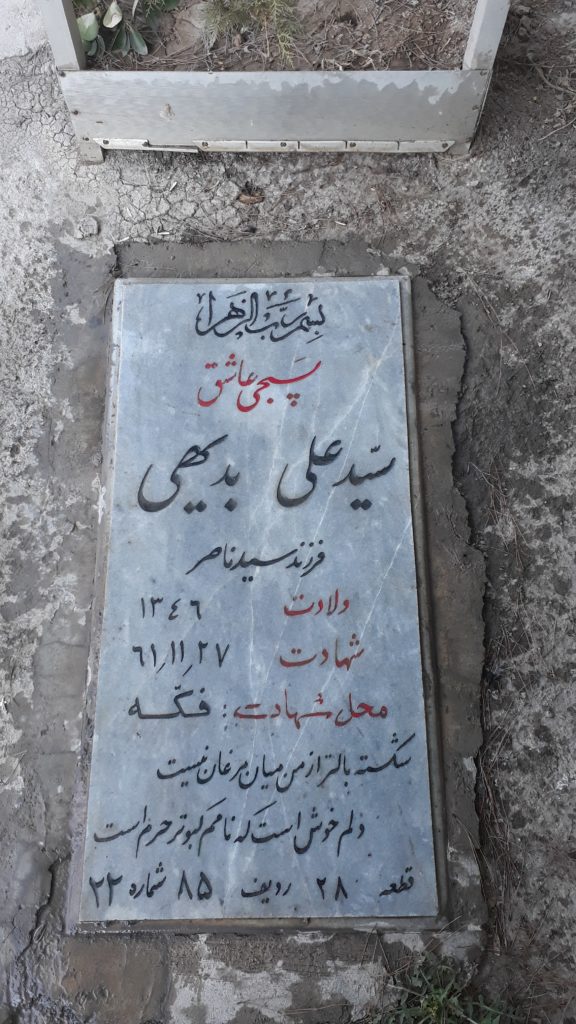 بسم رب الزهرا
بسیجی عاشق
سید علی بدیهی
فرزند سید ناصر
ولادت ۱۳۴۶
شهادت ۶۱٫۱۱٫۲۷
محل شهادت: فکّه
شکسته بالتر از من میان مرغان نیست
دلم خوش است که نامم کبوتر حرم است
قطعه ۲۸ ردیف ۸۵ شماره ۲۲